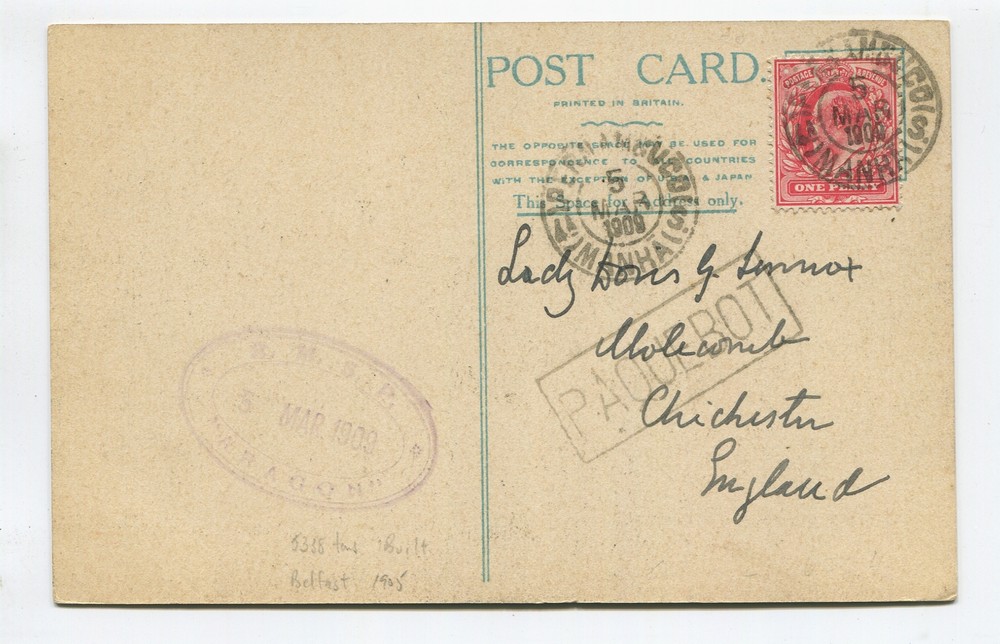 POST CARD.
PRINTED IN BRITAIN.
THE OPPOSITE SPACE MAY BE USED FOR
CORRESPONDENCE TO ALL COUNTRIES
WITH THE EXCEPTION OF U.S.A. & JAPAN
This Space for Address only.
POSTAGE & REVENUE
ONE PENNY
5
MAR
1909
(MANHÃ)
5
MAR
1909
(MANHÃ)
Lady Doris G. Lennox
Molecomb
Chichester
England
PAQUEBOT
5 MAR 1909
"ARAGON"
5338 tons Built
Belfast. 1905